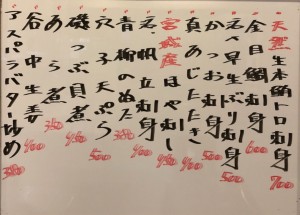 天然生本鮪トロ刺身 700
金目鯛刺身 600
早生ぶり刺身 500
かつお刺身 500
真あじたたき 400
宮城産ほや刺し 450
帆立刺身
青柳のぬた 380
穴子天ぷら 500
磯つぶ貝煮 450
あら煮 350
谷中生姜 400
アスパラバター炒め 380